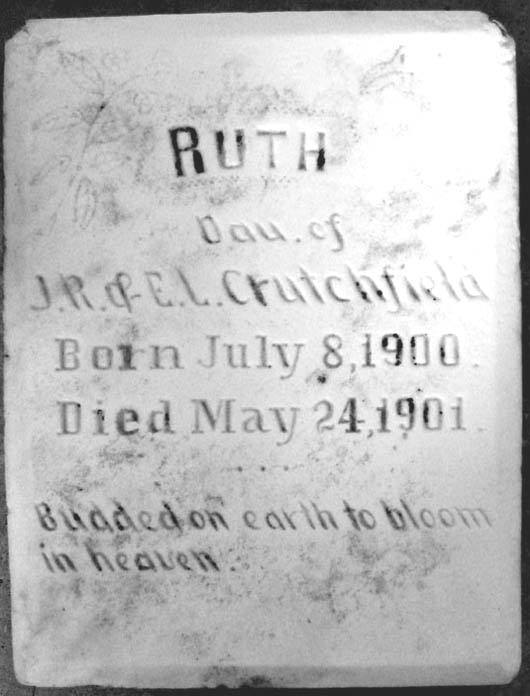 RUTH
Dau. of
J.R. & E.L. Crutchfield
Born July 8, 1900.
Died May 24, 1901.
Budded on earth to bloom
in heaven.